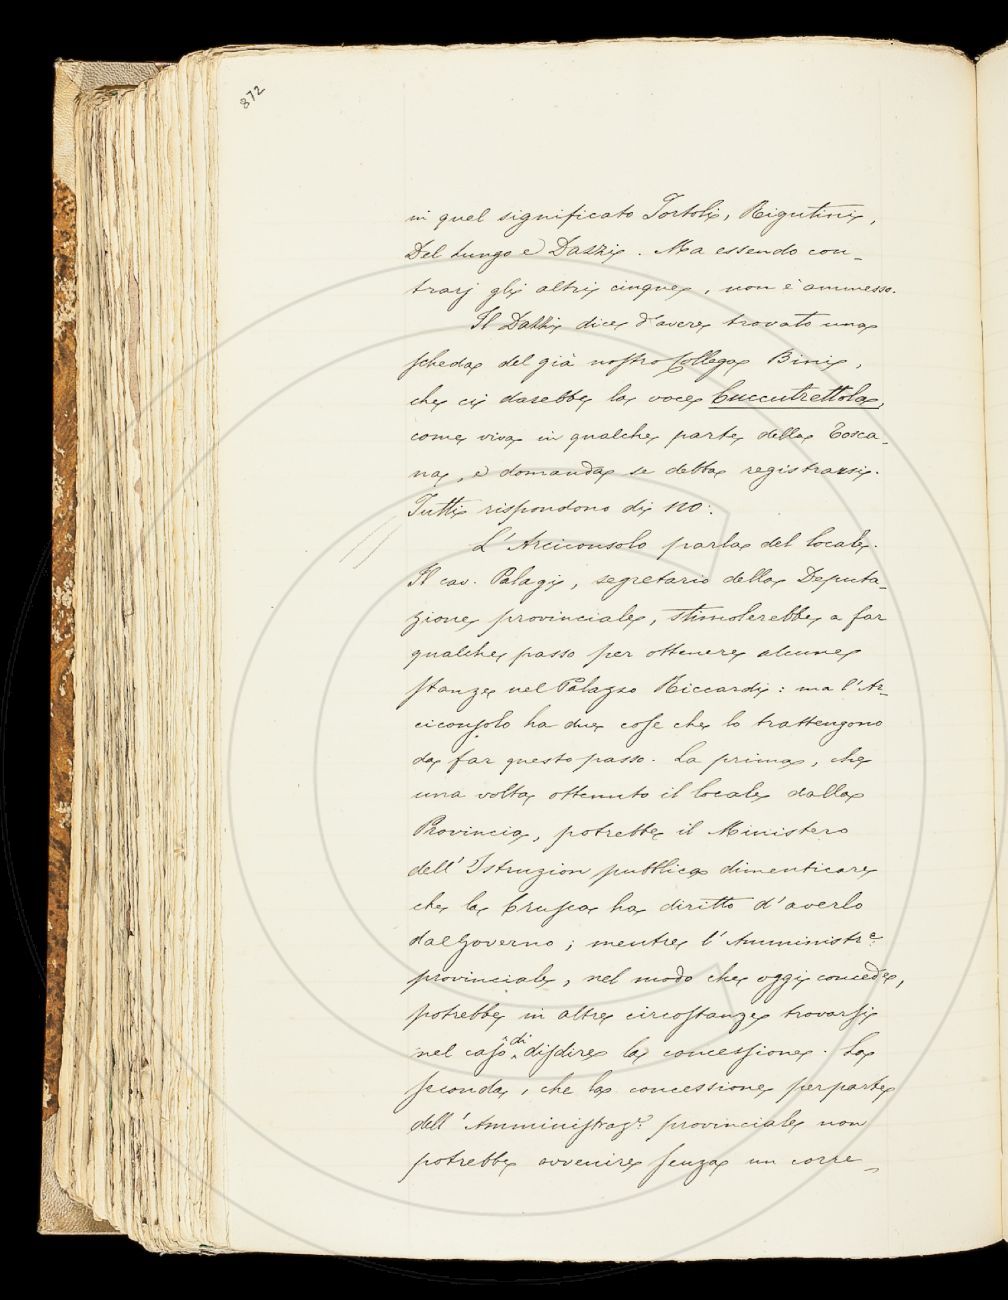 872
in quel significato Tortoli, Rigutini,
Del Lungo e Dazzi. Ma essendo con-
trarj gli altri cinque, non è ammesso.
Il Dazzi dice d'avere trovato una
scheda del già nostro Collega Bini,
che ci darebbe la voce Cuccutrettola,
come viva in qualche parte della Tosca-
na, e domanda se debba registrarsi.
Tutti rispondono di no.
L'Arciconsolo parla del locale.
Il cav. Palagi, segretario della Deputa-
zione provinciale, stimolerebbe a far
qualche passo per ottenere alcune
stanze nel Palazzo Riccardi: ma l'Ar-
ciconsolo ha due cose che lo trattengono
da far questo passo. La prima, che
una volta ottenuto il locale dalla
Provincia, potrebbe il Ministero
dell'Istruzion pubblica dimenticare
che la Crusca ha diritto d'averlo
dal Governo; mentre l'Amministr.e
provinciale, nel modo che oggi concede,
potrebbe in altre circostanze trovarsi
nel caso di disdire la concessione. La
seconda, che la concessione per parte
dell'Amministraz.e provinciale non
potrebbe avvenire senza un corre-